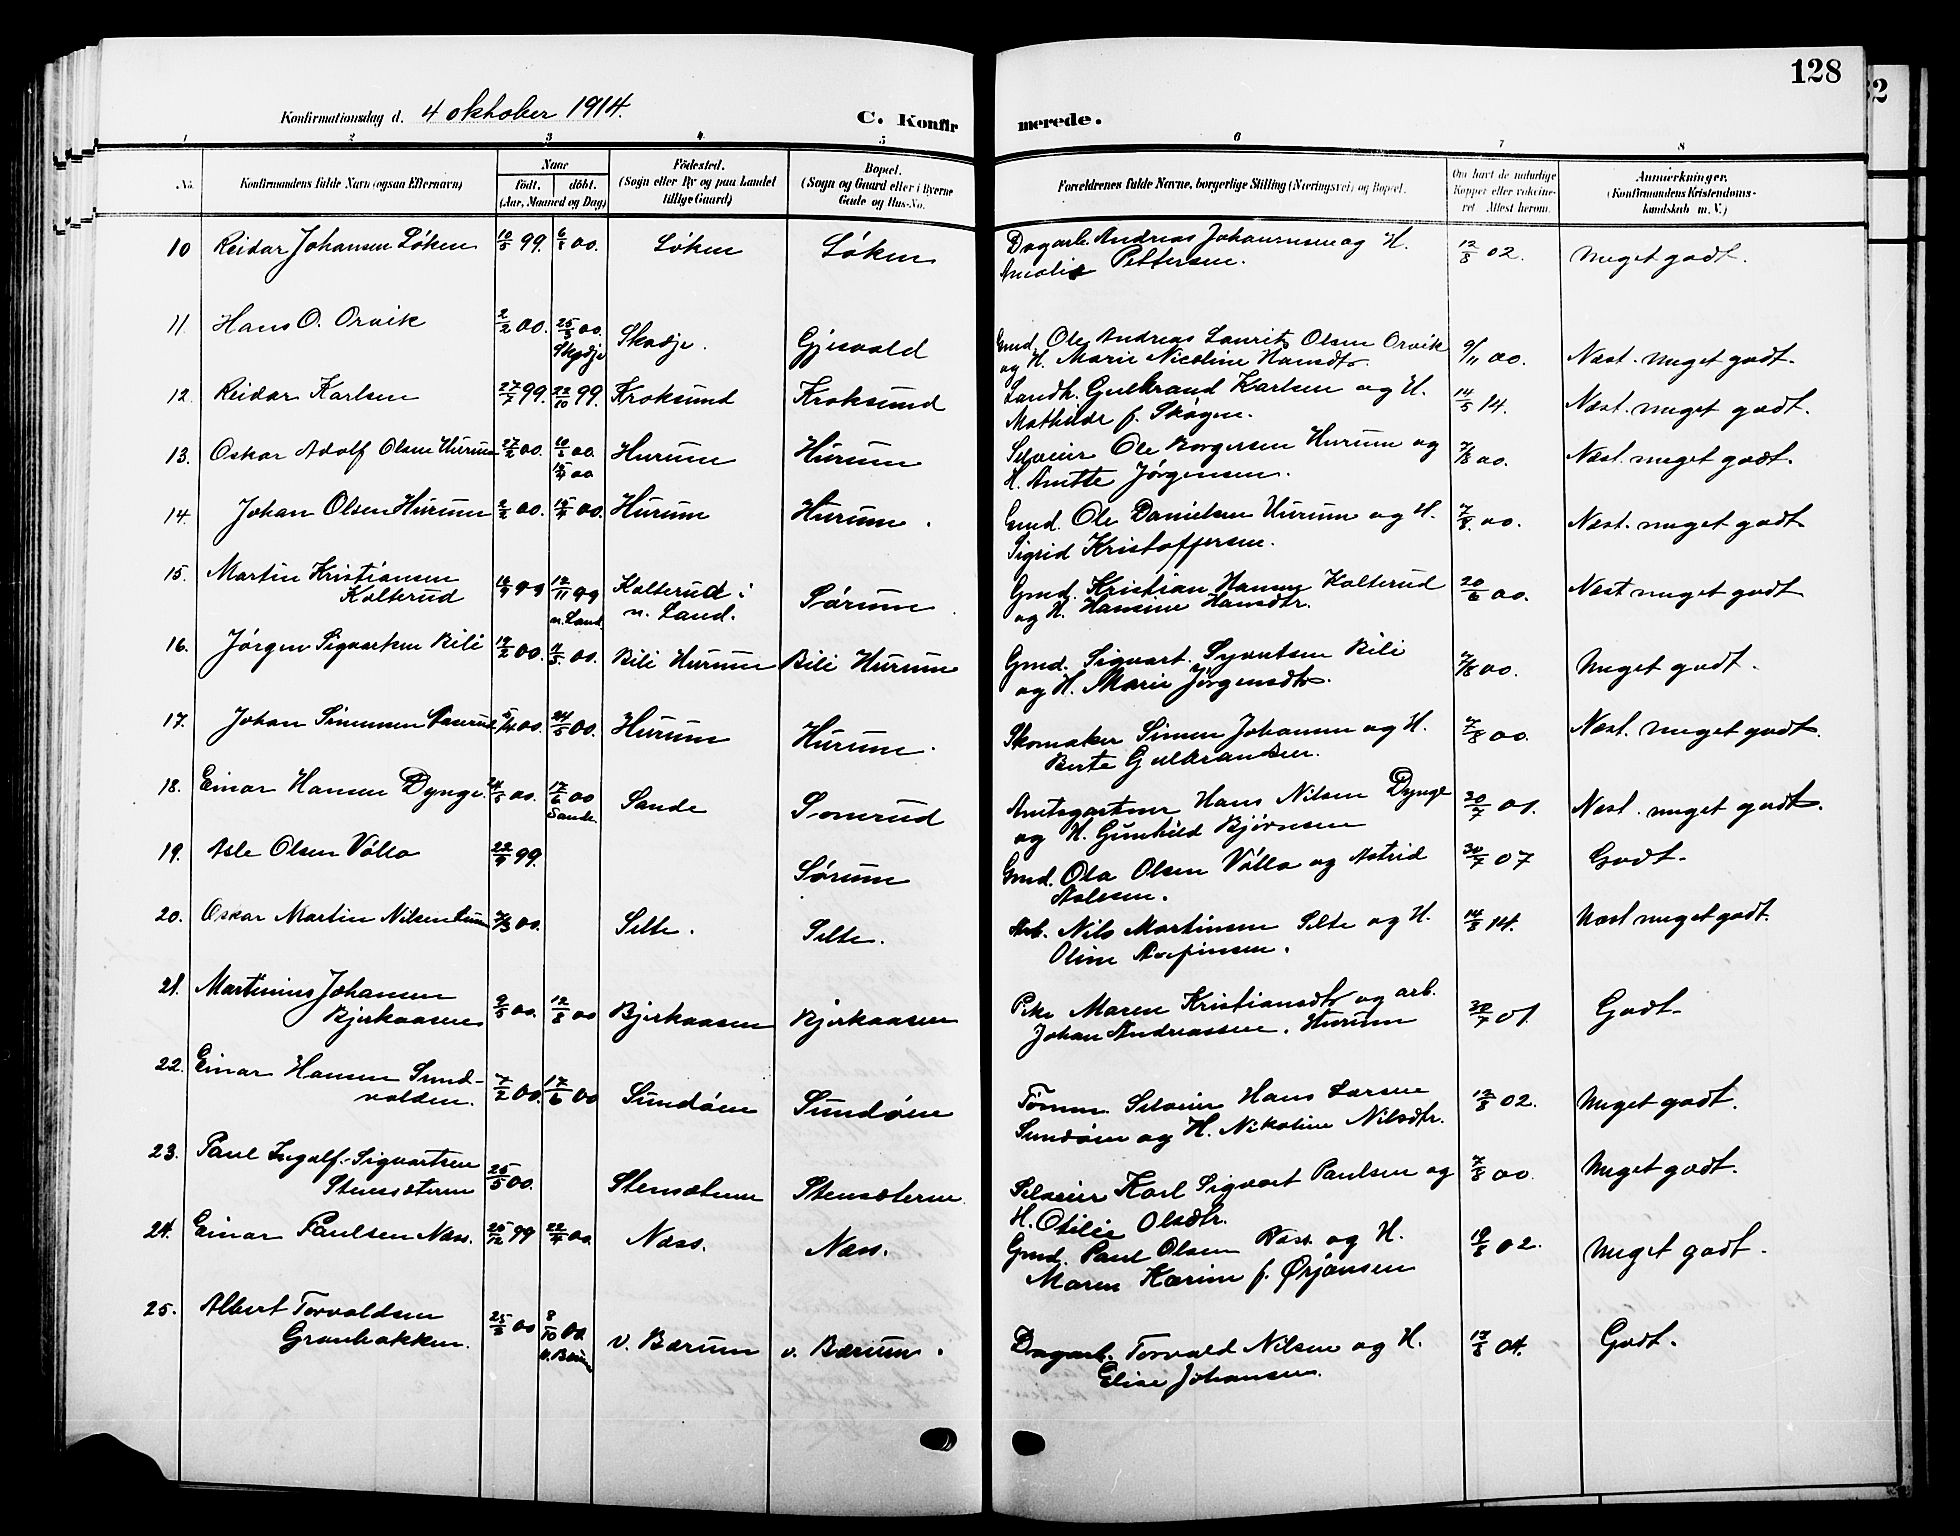 128
Konfirmationsdag d. 4 oktober 1914.
C. Konfirmerede.
1 2 3 4 5 6 7 8
No. Konfirmandens fulde Navn (ogsaa Efternavn) Naar födt. döbt. (Aar, Maaned og Dag) Födested. (Sogn eller By og paa Landet tillige Gaard) Bopæl. (Sogn og Gaard eller i Byerne Gade og Hus-No. Forældrenes fulde Navne, borgerlige Stilling (Næringsvei) og Bopæl. Om havt de naturlige Kopper eller vakcineret. Attest herom. Anmerkninger. (Konfirmandens Kristendomskundskab m. V.)
10 Reidar Johansen Løken 10/5 99. 6/8 00. Løken Løken Dagarb. Andreas Johannesen og H. 12/8 02. Meget godt.
Amalie Pettersen.
11. Hans O. Orvik 2/2 00. 25/3 00. Skodje Skodje. Gjesvold Gmd. Ole Andreas Laurits Olsen Orvik 9/11 00. Næst. meget godt.
og H. Marie Nicoline Hansdtr.
12. Reidar Karlsen 27/7 99. 22/10 99. Kroksund Kroksund Landh. Gulbrand Karlsen og H. 14/5 14. Næst. meget godt.
Mathilde f. Skogen.
13. Oskar Adolf Olsen Hurum 27/2 00. 10/6 00 15/7 00 Hurum Hurum Selveier Ole Borgersen Hurum og 7/8 00. Næst. meget godt.
H. Anette Jørgensen.
14. Johan Olsen Hurum 2/2 00. 15/7 00. Hurum Hurum. Gmd. Ole Danielsen Hurum og H. 7/8 00. Næst. meget godt
Sigrid Kristoffersen.
15. Martin Kristiansen
Kolterud 16/9 99 12/11 99 n. Land Kolterud i n. Land. Sørum Gmd. Kristian Hansen Kolterud 20/6 00. Næst meget godt
og H. Hansine Hansdtr.
16. Jørgen Sigvartsen Bili 19/2 00. 11/5 00. Bili Hurum Bili Hurum Gmd. Sigvart Syvertsen Bili 7/8 00. Meget godt.
og H. Marie Jørgensdtr.
17. Johan Simensen 5/4 00. 24/5 00. Hurum Hurum. Skomaker Simen Johansen og H. 7/8 00. Næst. meget godt.
Berte Gulbrandsen.
18. Einar Hansen Dynge. 24/5 00. 17/6 00 Sande. Sande Somrud Amtsgartner Hans Nilsen Dynge 30/7 01. Næst. meget godt.
og H. Gunhild Bjørnsen
19. Asle Olsen Völlo 22/9 99. Sørum Gmd. Ola Olsen Völlo og Astrid 30/7 07 Godt.
Aslesen.
20. Oskar Martin Nilsen 7/3 00. Selte. Selte. Arb. Nils Martinsen Selte og H. 14/8 14. Næst meget godt.
Oline
21. Martinius Johansen
Bjerkaasen 9/5 00. 12/8 00 Bjerkaasen Bjerkaasen Pike Maren Kristiansdtr og arb. 30/7 01. Godt.
Johan Andreassen. Hurum
22. Einar Hansen Sund-
volden. 7/2 00. 17/6 00 Sundöen Sundöen Tömm. Selveier Hans Larsen 12/8 02. Meget godt.
Sundöen og H. Nikoline Nilsdtr.
23. Paul Ingolf Sigvartsen
Stensæteren 25/5 00. Stensæteren Stensæteren Selveier Karl Sigvart Paulsen og 7/8 00. Meget godt.
H. Otilie Olsdtr.
24. Einar Paulsen Næss. 25/12 99 22/4 00. Næss. Næss. Gmd. Paul Olsen Næss og H. 19/8 02. Meget godt.
Maren Karine f. Ørjansen
25. Albert Torvaldsen
Granbakken. 25/8 00 8/10 00. v. Bærum v. Bærum v. Bærum. Dagarb. Torvald Nilsen og H. 17/8 04. Godt.
Elise Johansen.